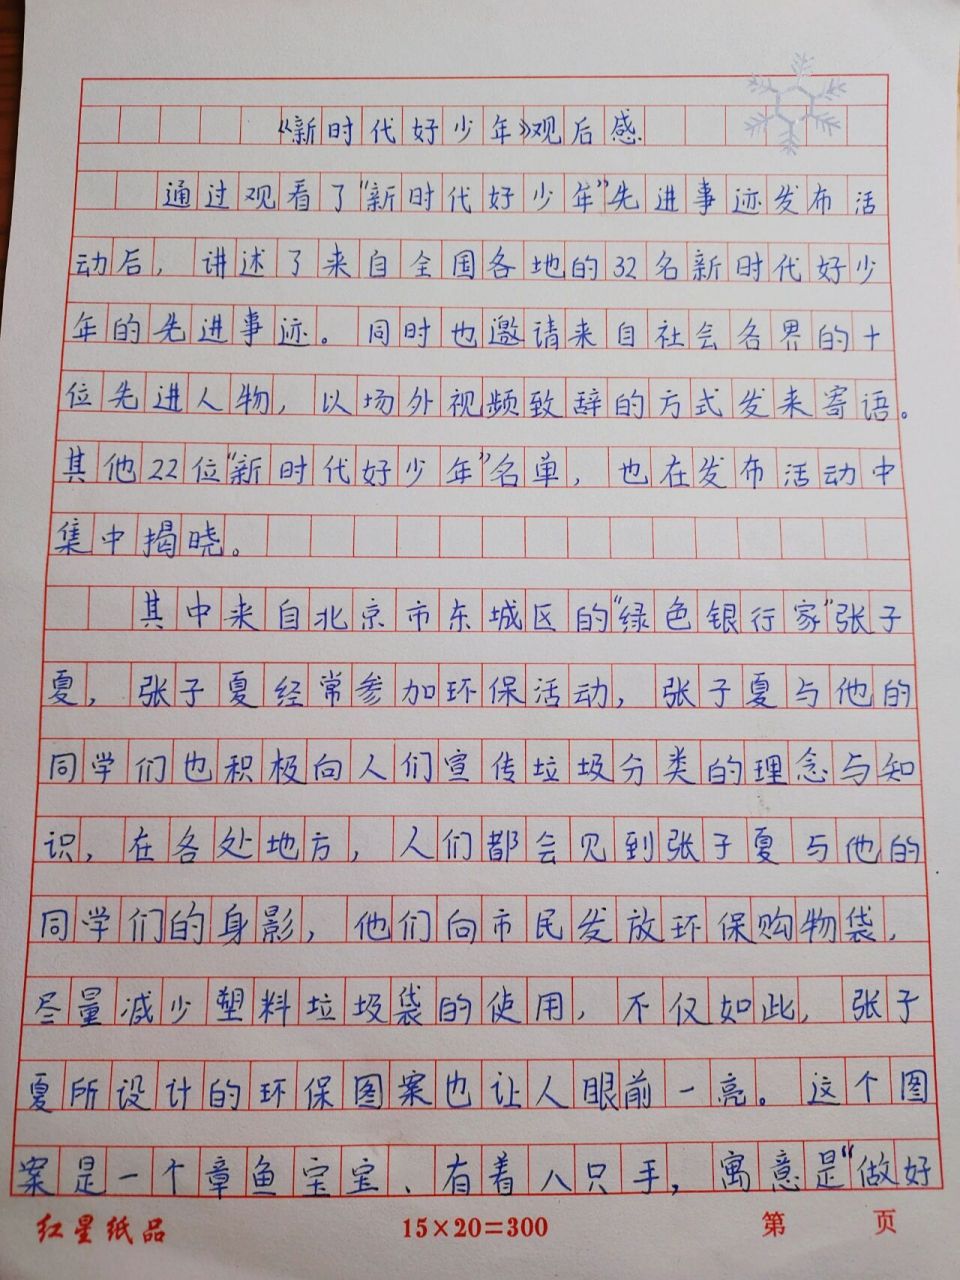 《新时代好少年》观后感
通过观看了“新时代好少年”先进事迹发布活
动后，讲述了来自全国各地的32名新时代好少
年的先进事迹。同时也邀请来自社会各界的十
位先进人物，以场外视频致辞的方式发来寄语。
其他22位“新时代好少年”名单，也在发布活动中
集中揭晓。
其中来自北京市东城区的“绿色银行家”张子
夏，张子夏经常参加环保活动，张子夏与他的
同学们也积极向人们宣传垃圾分类的理念与知
识，在各处地方，人们都会见到张子夏与他的
同学们的身影，他们向市民发放环保购物袋，
尽量减少塑料垃圾袋的使用，不仅如此，张子
夏所设计的环保图案也让人眼前一亮。这个图
案是一个章鱼宝宝、有着八只手，寓意是“做好
红星纸品 15×20=300 第 页